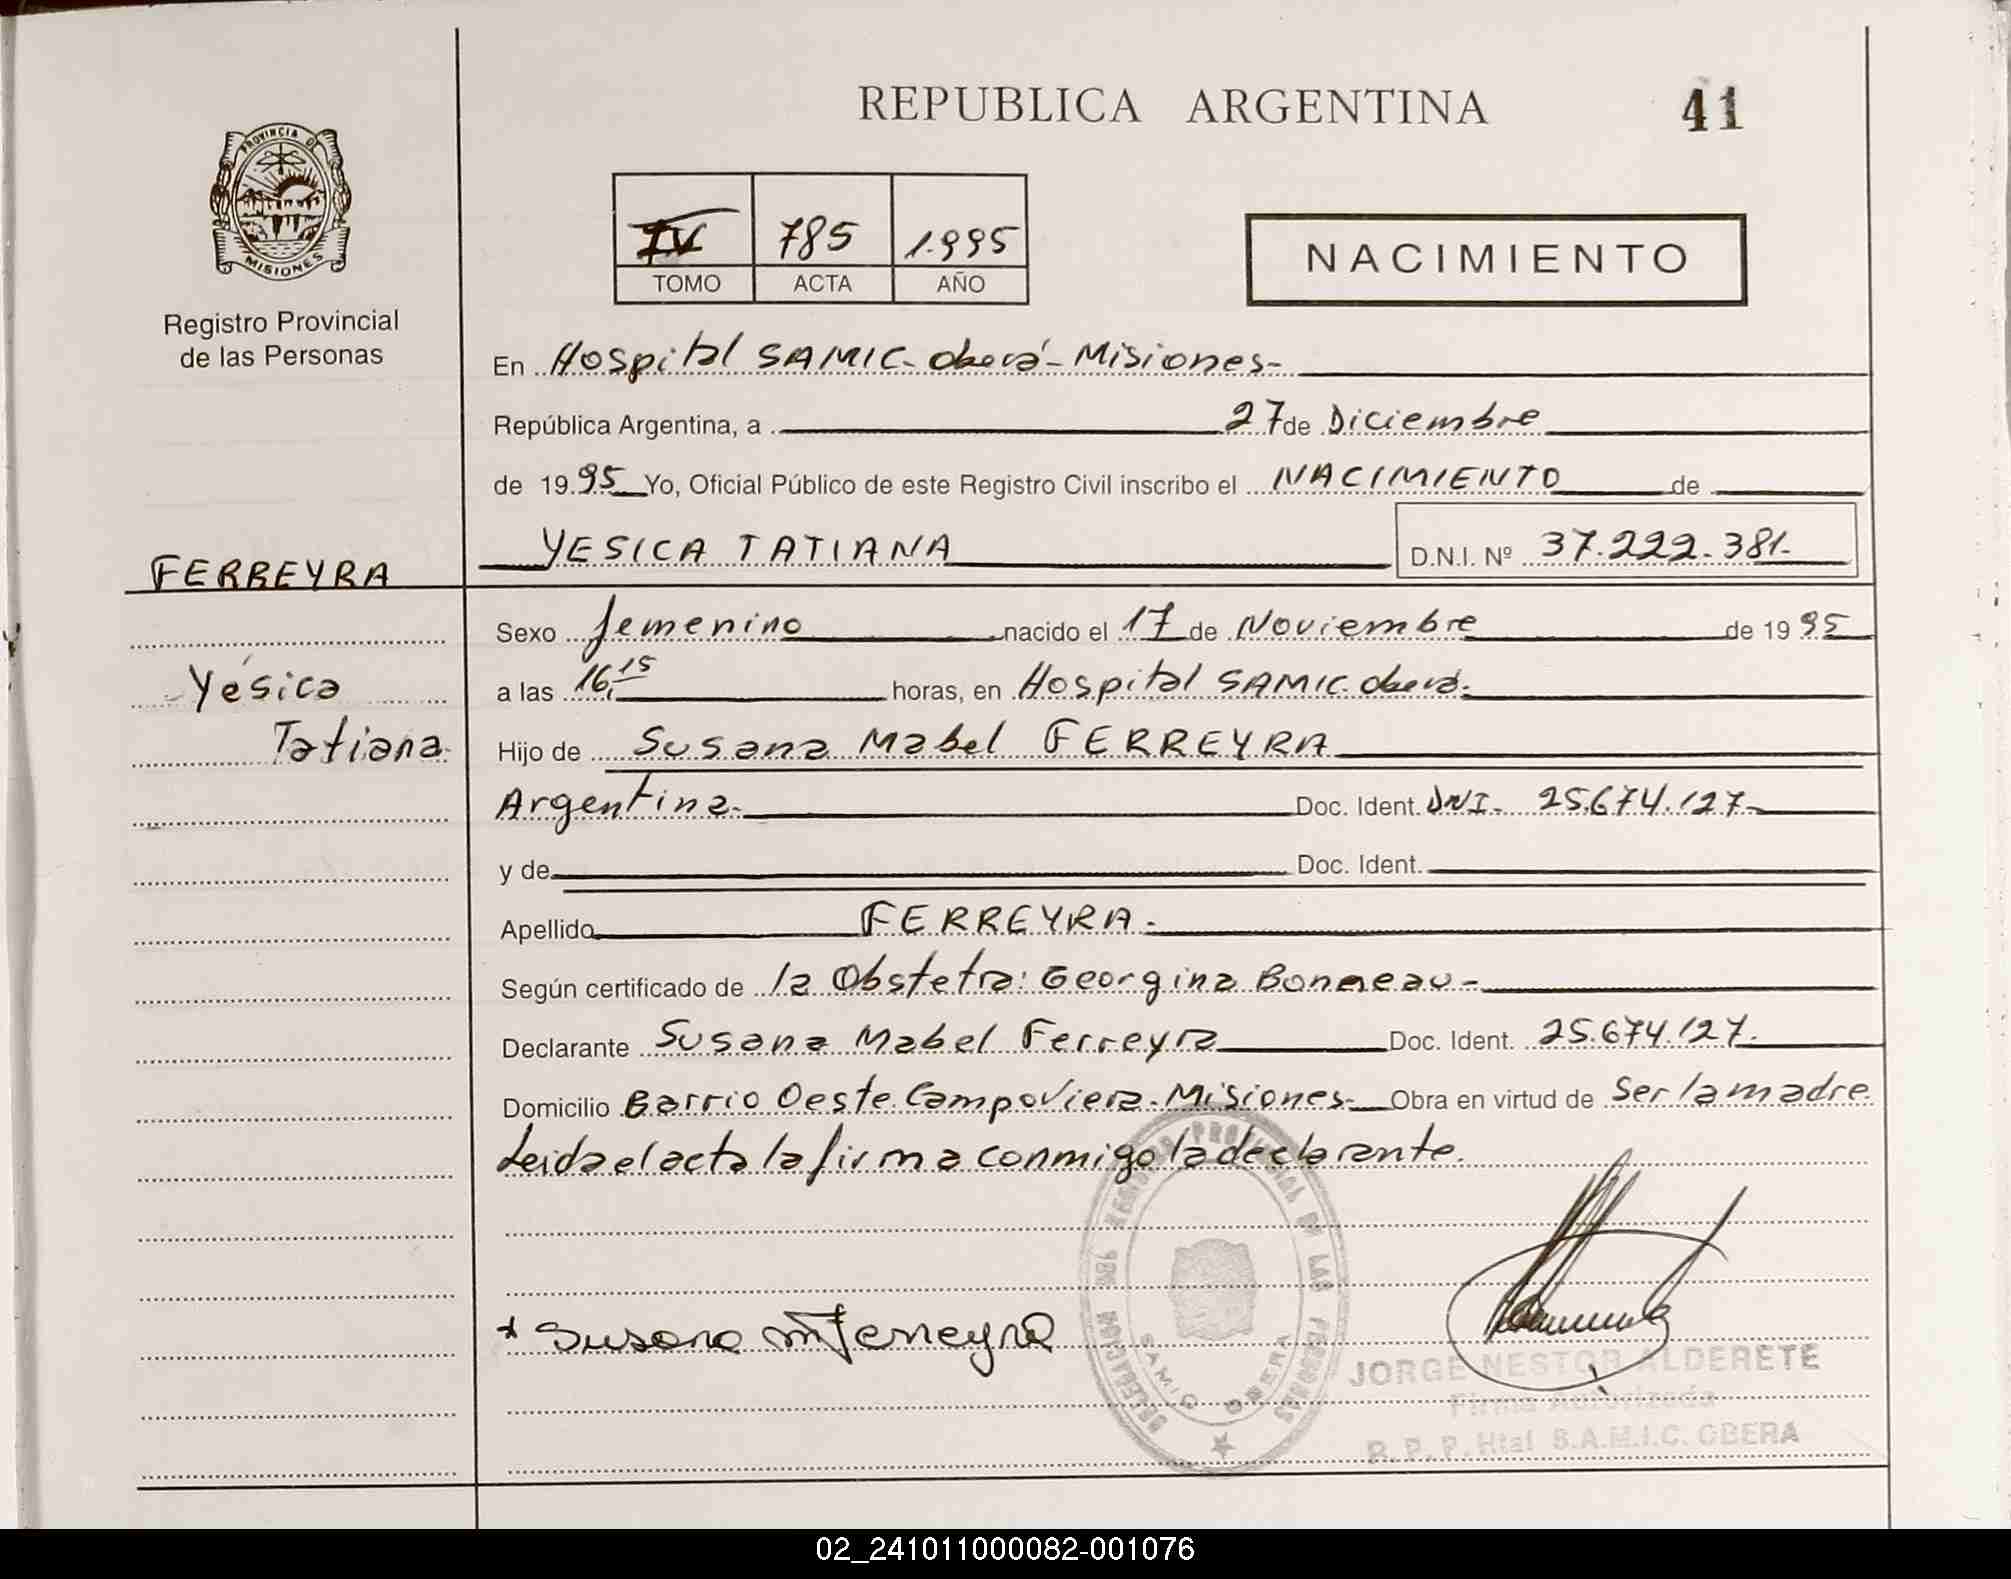 REPUBLICA ARGENTINA
41
PROVINCIA DE
MISIONES
Registro Provincial
de las Personas
IV 785 1.995
TOMO ACTA AÑO
NACIMIENTO
En Hospital SAMIC- Oberá - Misiones-
República Argentina, a 27 de Diciembre
de 1995 Yo, Oficial Público de este Registro Civil inscribo el NACIMIENTO de
YESICA TATIANA D.N.I. Nº 37.222.381-
FERREYRA
Sexo femenino nacido el 17 de Noviembre de 1995
Yésica
a las 16,15 horas, en Hospital SAMIC Oberá-
Tatiana-
Hijo de Susana Mabel FERREYRA
Argentina- Doc. Ident. DNI- 25.674.127-
y de Doc. Ident.
Apellido FERREYRA-
Según certificado de la Obstetra: Georgina Bonneau-
Declarante Susana Mabel Ferreyra Doc. Ident. 25.674.127.
Domicilio Barrio Oeste Campo Viera-Misiones- Obra en virtud de Ser la madre.
Leida el acta la firma conmigo la declarante.
REGISTRO PROVINCIAL DE LAS PERSONAS
DELEGACION
SAMIC OBERA
* Susana M Ferreyra
JORGE NESTOR ALDERETE
Firma Autorizada
R.P.P. Htal S.A.M.I.C. OBERA
02_241011000082-001076